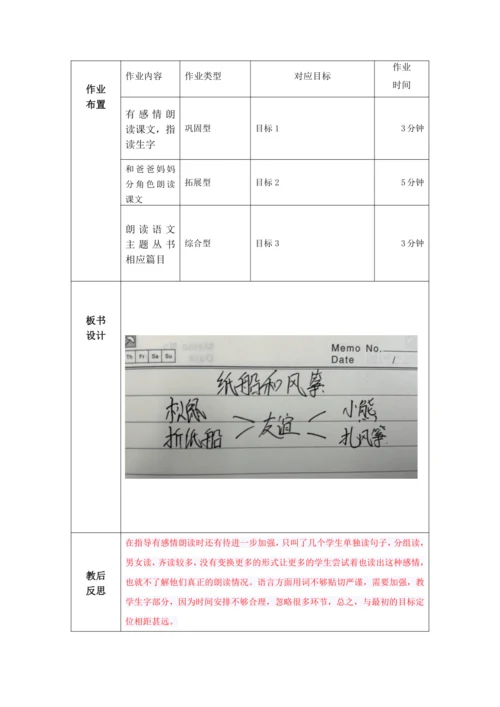 作业布置
作业内容 作业类型 对应目标 作业时间
有感情朗读课文，指读生字 巩固型 目标1 3分钟
和爸爸妈妈分角色朗读课文 拓展型 目标2 5分钟
朗读语文主题丛书相应篇目 综合型 目标3 3分钟
板书设计
Th Fr Sa Su
Memo No.
Date /
纸船和风筝
松鼠 小熊
折纸船 友谊 扎风筝
教后反思
在指导有感情朗读时还有待进一步加强，只叫了几个学生单独读句子，分组读，
男女读，齐读较多，没有变换更多的形式让更多的学生尝试着也读出这种感情，
也就不了解他们真正的朗读情况。语言方面用词不够贴切严谨，需要加强，教
学生字部分，因为时间安排不够合理，忽略很多环节，总之，与最初的目标定
位相距甚远。